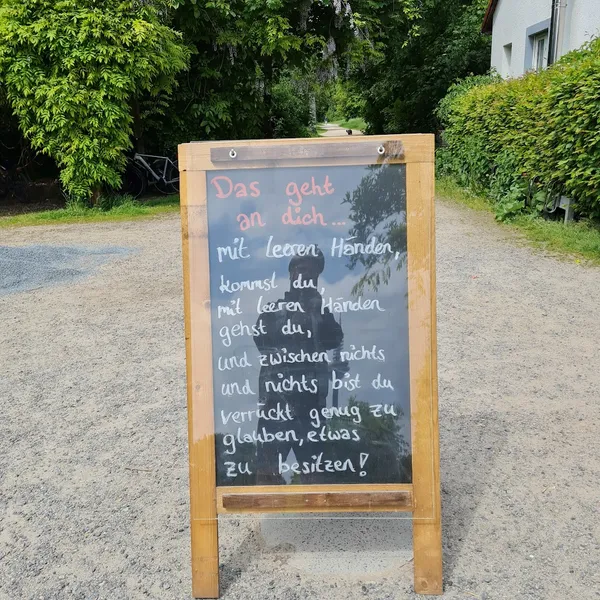 Das geht
an dich...
mit leeren Händen,
kommst du,
mit leeren Händen
gehst du,
und zwischen nichts
und nichts bist du
verrückt genug zu
glauben, etwas
zu besitzen!